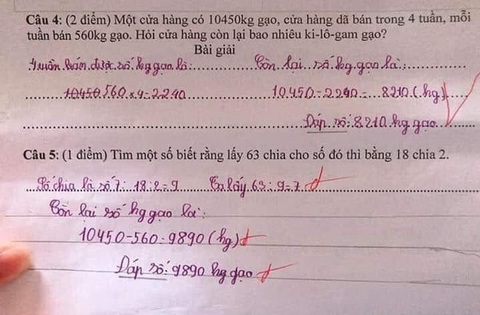 Câu 4: (2 điểm) Một cửa hàng có 10450kg gạo, cửa hàng đã bán trong 4 tuần, mỗi
tuần bán 560kg gạo. Hỏi cửa hàng còn lại bao nhiêu ki-lô-gam gạo?
Bài giải
4 tuần bán được số kg gạo là: Còn lại số kg gạo là:
10450 560 x 4 = 2240 10450 - 2240 = 8210 (kg)
Đáp số: 8210 kg gạo
Câu 5: (1 điểm) Tìm một số biết rằng lấy 63 chia cho số đó thì bằng 18 chia 2.
Số chia là số 7: 18 : 2 = 9 Ta lấy 63 : 9 = 7
Còn lại số kg gạo là:
10450 - 560 = 9890 (kg)
Đáp số: 9890 kg gạo